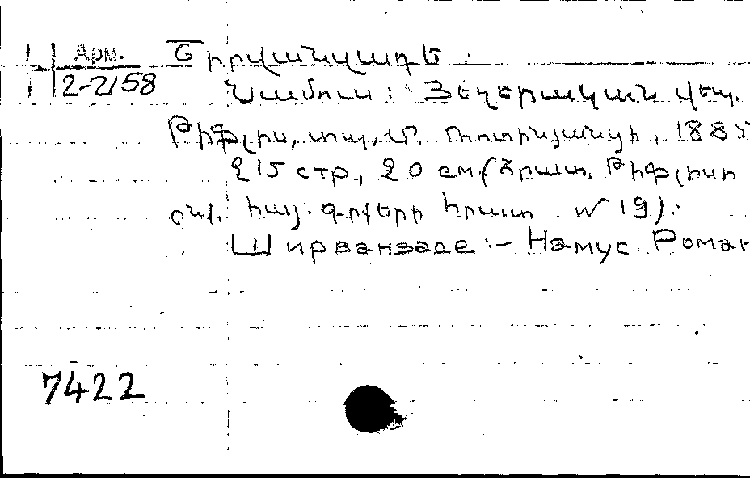 Арм.
2-2158
Շիրվանզադե.
Նամուս: Յեղերական վեպ.
Թիֆլիս, տպ. Մ. Ռոտինյանցի, 1885
215 стр., 20 см. (Հրատ. Թիֆլիսի
ընկ. հայ. գրքերի հրատ. № 19).
Ширванзаде – Намус. Роман
7422